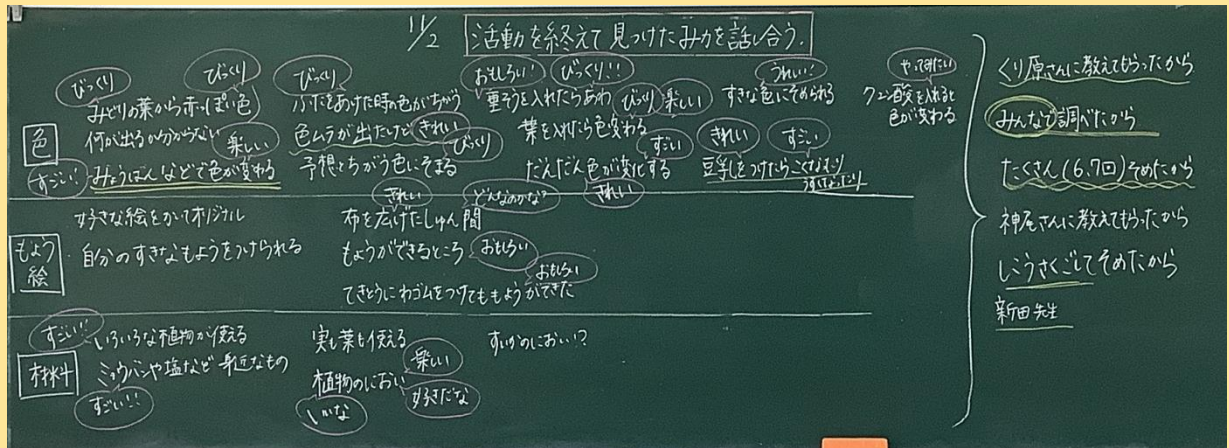 11/2 活動を終えて見つけたみ力を話し合う。
色
びっくり
みどりの葉から赤っぽい色
びっくり
何が出るか分からない
楽しい
すごい!
みょうばんなどで色が変わる
びっくり
ふたをあけた時の色がちがう
色ムラが出たけど きれい
予想とちがう色にそまる
びっくり
おもしろい!
びっくり!!
重そうを入れたらあわ
びっくり
楽しい
葉を入れたら色変わる
すごい
だんだん色が変化する
きれい
うれしい!
すきな色にそめられる
きれい
すごい
豆乳をつけたらこくなったり
うすくなったり
やってみたい
クエン酸を入れると
色が変わる
もよう
絵
好きな絵をかいてオリジナル
自分のすきなもようをつけられる
きれい
どんなのかな?
布を広げたしゅん間
もようができるところ
おもしろい
おもしろい
てきとうにわゴムをつけてももようができた
材料
すごい!!
いろいろな植物が使える
ミョウバンや塩など身近なもの
すごい!!
実も葉も使える
楽しい
植物のにおい
いいな
好きだな
すいかのにおい!?
くり原さんに教えてもらったから
みんなで調べたから
たくさん(6、7回)そめたから
神尾さんに教えてもらったから
しこうさくごしてそめたから
新田先生